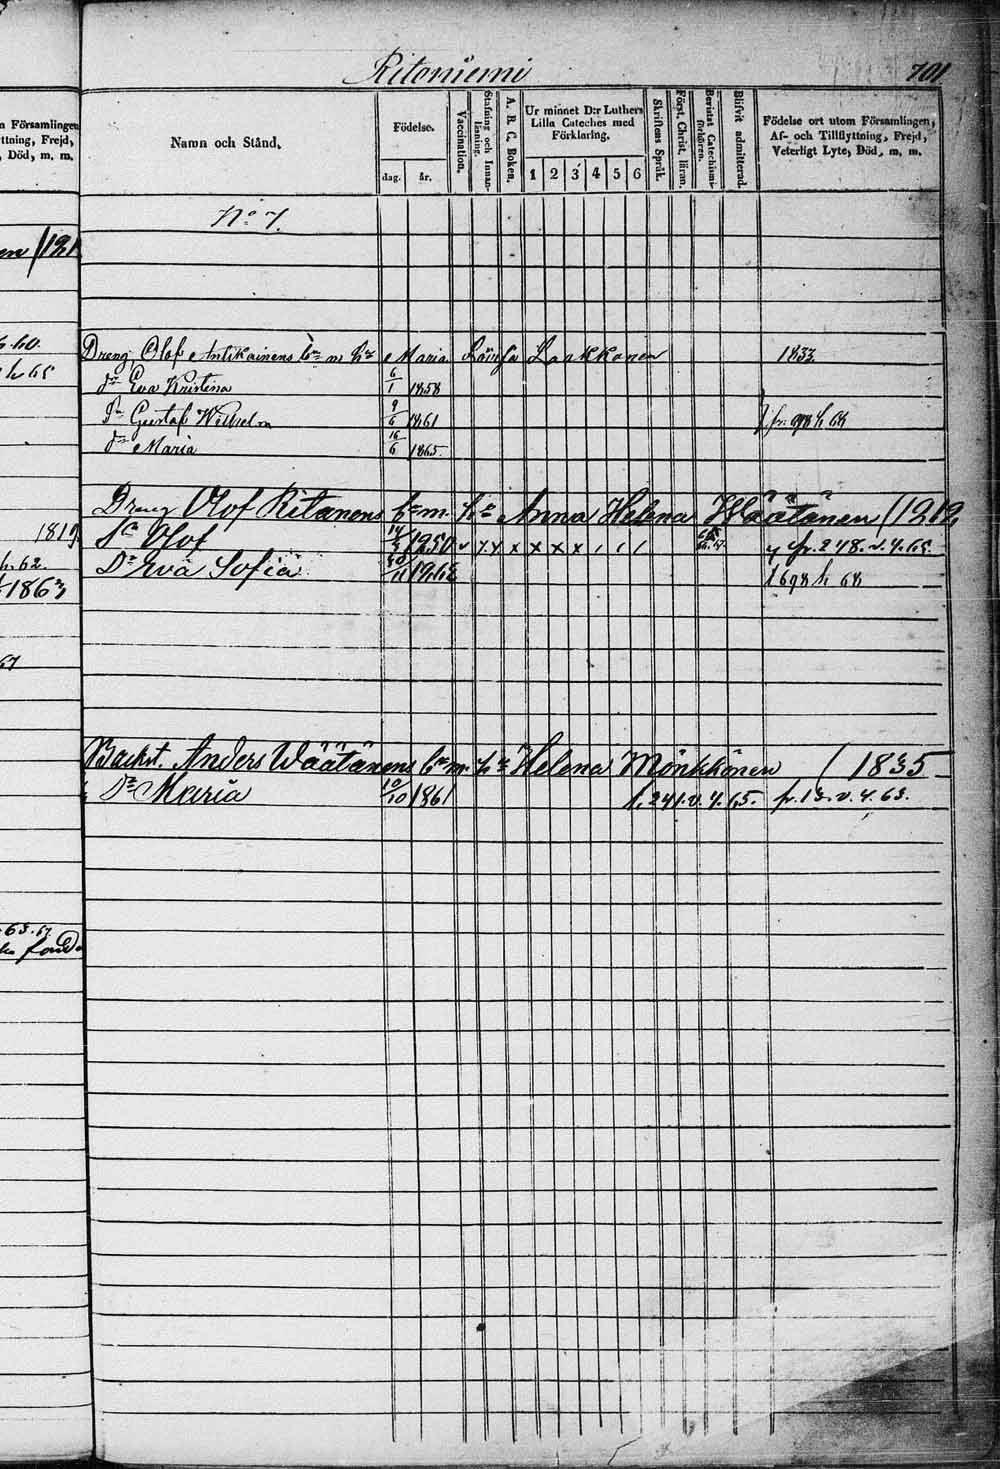 Ritoniemi 701
n Församlingen
ttning, Frejd,
, Död, m. m.
Namn och Stånd.
Födelse.
dag. år.
Vaccination.
Stafning och Innanläsning.
A. B. C. Boken.
Ur minnet D:r Luthers Lilla Cateches med Förklaring.
1 2 3 4 5 6
Skriftens Språk.
Först. Christ. läran.
Bevistat Catechismi-förhören.
Blifvit admitterad.
Födelse ort utom Församlingen, Af- och Tillflyttning, Frejd, Veterligt Lyte, Död, m. m.
No 7.
Dreng Olof Antikainens Maria Lovisa Laakkonen 1833
dr Eva Kristina 6/1 1858
Sn Gustaf Wilhelm 9/6 1861 fr. 698 h 68
dr Maria 16/6 1865
Dreng Olof Ritanens Anna Helena Wäätänen
Sn Olof 1850 fr. 248. v. 4. 65.
Dr Eva Sofia 698 h 68
Anders Wäätänens Helena Mönkkönen 1835
Dr Maria 10/10 1861 241. v. 4. 65. fr. 13. v. 4. 63.
1819
h. 62.
1863
67